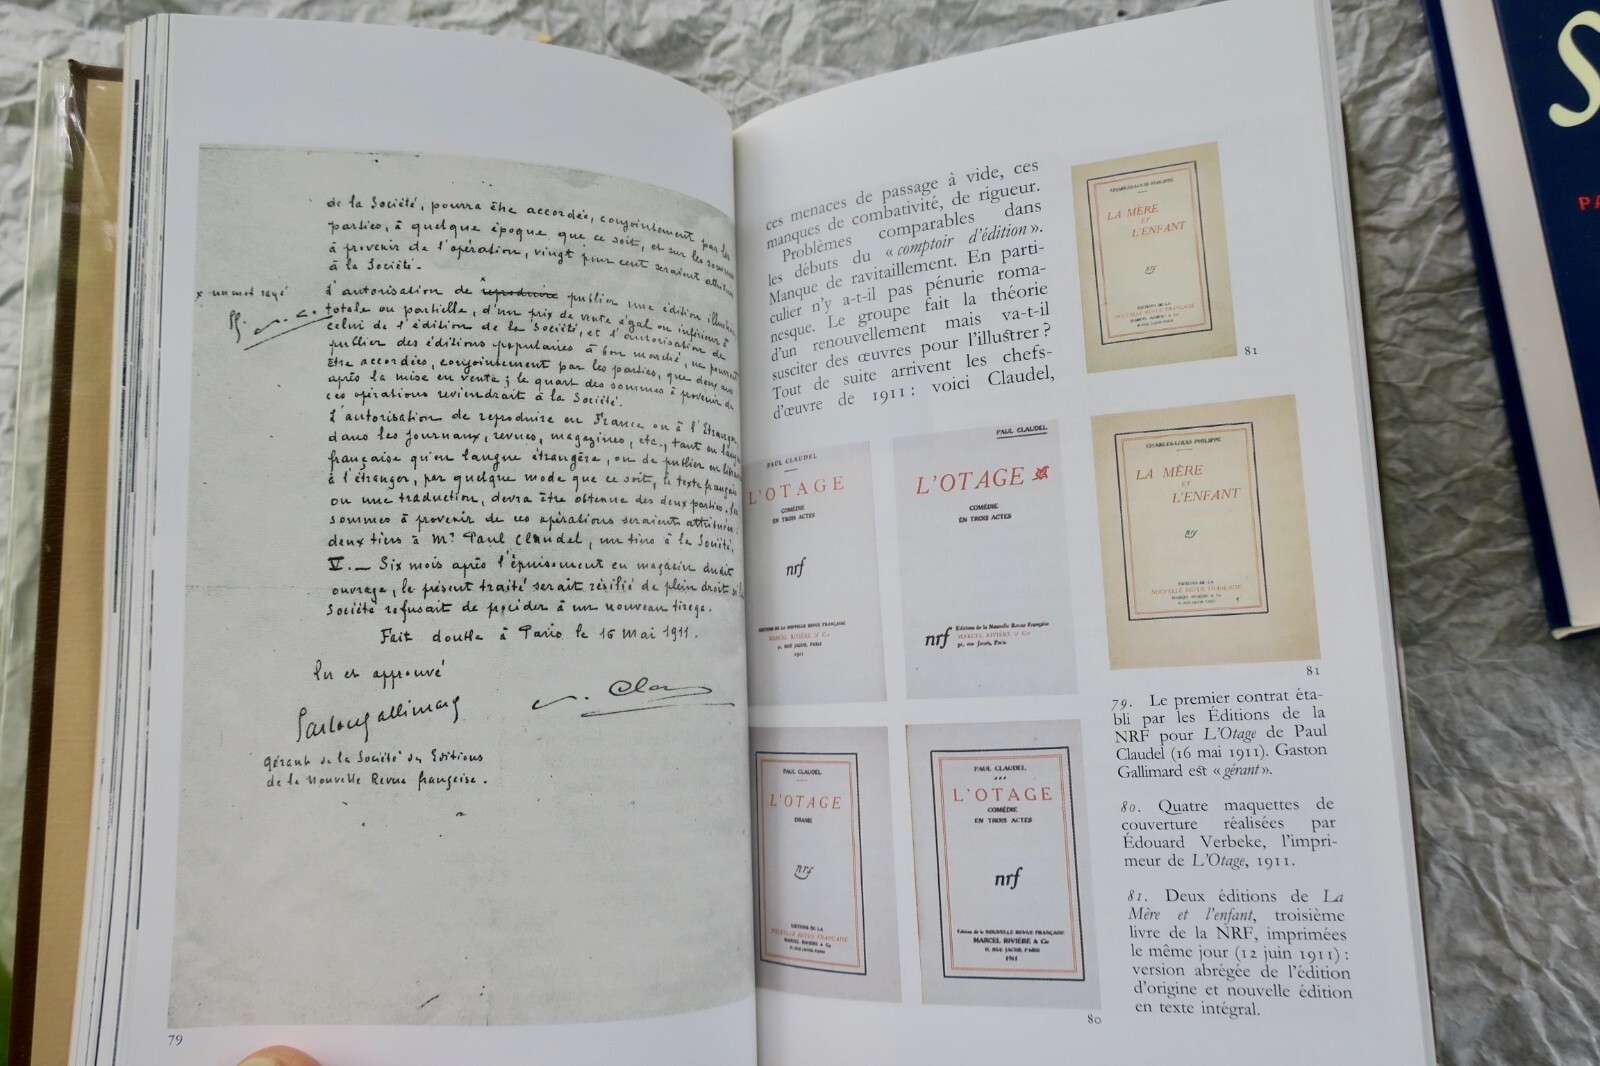 de la Société, pourra être accordée, conjointement par les
parties, à quelque époque que ce soit, et sur les sommes
à provenir de l'opération, vingt pour cent seraient attribués
à la Société.
L'autorisation de reproduire publier une édition illustrée
x un mot rayé
totale ou partielle, d'un prix de vente égal ou inférieur à
celui de l'édition de la Société, et l'autorisation de
publier des éditions populaires à bon marché, ne pourront
être accordées, conjointement par les parties, que deux ans
après la mise en vente ; le quart des sommes à provenir de
ces opérations reviendrait à la Société.
L'autorisation de reproduire en France ou à l'Étranger
dans les journaux, revues, magazines, etc., tant en langue
française qu'en langue étrangère, ou de publier en
à l'étranger, par quelque mode que ce soit, le texte français
ou une traduction, devra être obtenue des deux parties. Les
sommes à provenir de ces opérations seraient attribuées :
deux tiers à Mr. Paul Claudel, un tiers à la Société.
V. — Six mois après l'épuisement en magasin dudit
ouvrage, le présent traité serait résilié de plein droit si la
Société refusait de procéder à un nouveau tirage.
Fait double à Paris le 16 Mai 1911.
Lu et approuvé
Gaston Gallimard
gérant de la Société des Editions
de la Nouvelle Revue française.
79
ces menaces de passage à vide, ces
manques de combativité, de rigueur.
Problèmes comparables dans
les débuts du « comptoir d'édition ».
Manque de ravitaillement. En parti-
culier n'y a-t-il pas pénurie roma-
nesque. Le groupe fait la théorie
d'un renouvellement mais va-t-il
susciter des œuvres pour l'illustrer ?
Tout de suite arrivent les chefs-
d'œuvre de 1911 : voici Claudel,
CHARLES-LOUIS PHILIPPE
LA MÈRE
ET
L'ENFANT
nrf
ÉDITIONS DE LA
NOUVELLE REVUE FRANÇAISE
MARCEL RIVIÈRE & Cie
31, RUE JACOB, PARIS
81
PAUL CLAUDEL
L'OTAGE
COMÉDIE
EN TROIS ACTES
nrf
ÉDITIONS DE LA NOUVELLE REVUE FRANÇAISE
MARCEL RIVIÈRE & Cie
31, RUE JACOB, PARIS
1911
PAUL CLAUDEL
L'OTAGE
COMÉDIE
EN TROIS ACTES
nrf
Éditions de la Nouvelle Revue Française
MARCEL RIVIÈRE & Cie
31, rue Jacob, Paris
CHARLES-LOUIS PHILIPPE
LA MÈRE
ET
L'ENFANT
nrf
ÉDITIONS DE LA
NOUVELLE REVUE FRANÇAISE
MARCEL RIVIÈRE & Cie
31, RUE JACOB, PARIS
81
PAUL CLAUDEL
L'OTAGE
DRAME
nrf
ÉDITIONS DE LA
NOUVELLE REVUE FRANÇAISE
MARCEL RIVIÈRE & Cie
31, RUE JACOB, PARIS
PAUL CLAUDEL
L'OTAGE
COMÉDIE
EN TROIS ACTES
nrf
Édition de la NOUVELLE REVUE FRANÇAISE
MARCEL RIVIÈRE & Cie
31, RUE JACOB, PARIS
1911
80
79. Le premier contrat éta-
bli par les Éditions de la
NRF pour L'Otage de Paul
Claudel (16 mai 1911). Gaston
Gallimard est « gérant ».
80. Quatre maquettes de
couverture réalisées par
Édouard Verbeke, l'impri-
meur de L'Otage, 1911.
81. Deux éditions de La
Mère et l'enfant, troisième
livre de la NRF, imprimées
le même jour (12 juin 1911) :
version abrégée de l'édition
d'origine et nouvelle édition
en texte intégral.